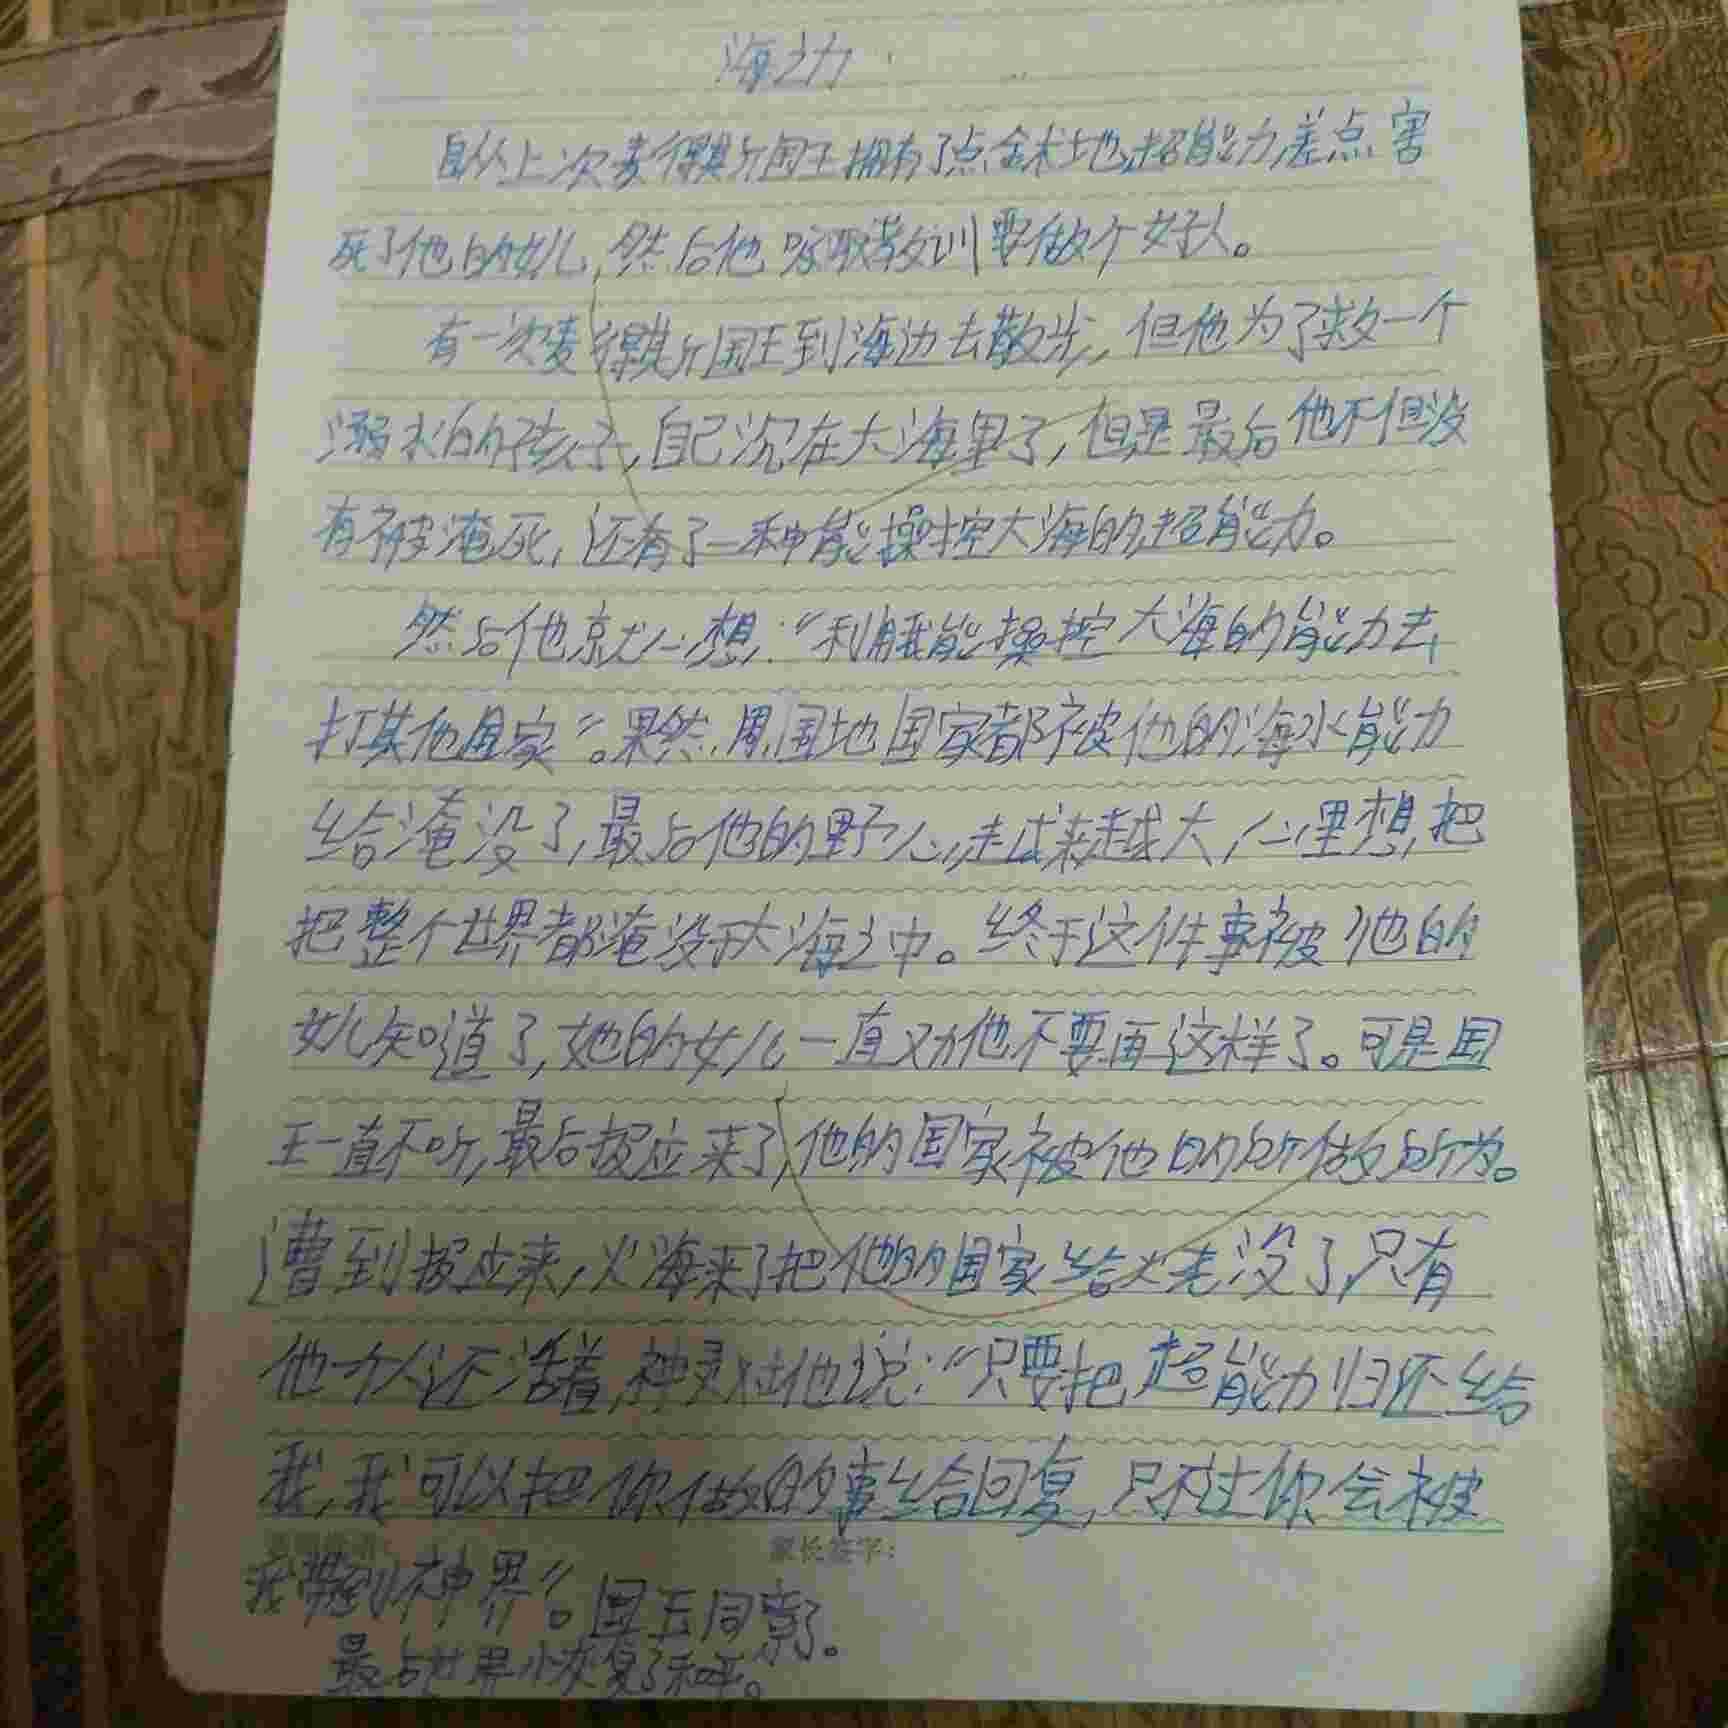 海之力
自从上次麦得其斤国王拥有了点金术地超能力,差点害
死了他的女儿,然后他吸取教训要做个好人。
有一次麦得其斤国王到海边去散步,但他为了救一个
溺水的孩子,自己沉在大海里了,但是最后他不但没
有被淹死,还有了一种能操控大海的超能力。
然后他就心想:“利用我能操控大海的能力去
打其他国家”。果然,周围地国家都被他的海水能力
给淹没了,最后他的野心,越来越大,心里想,把
把整个世界都淹没于大海之中。终于这件事被他的
女儿知道了,她的女儿一直劝他不要再这样了。可是国
王一直不听,最后报应来了,他的国家被他的所做所为。
遭到报应来,火海来了把他的国家给火淹没了,只有
他一个人还活着,神灵对他说:“只要把超能力归还给
我,我可以把你做的事给回复,只不过你会被
家长签字:
我带到神界”。国王同意了。
最后世界恢复了和平。